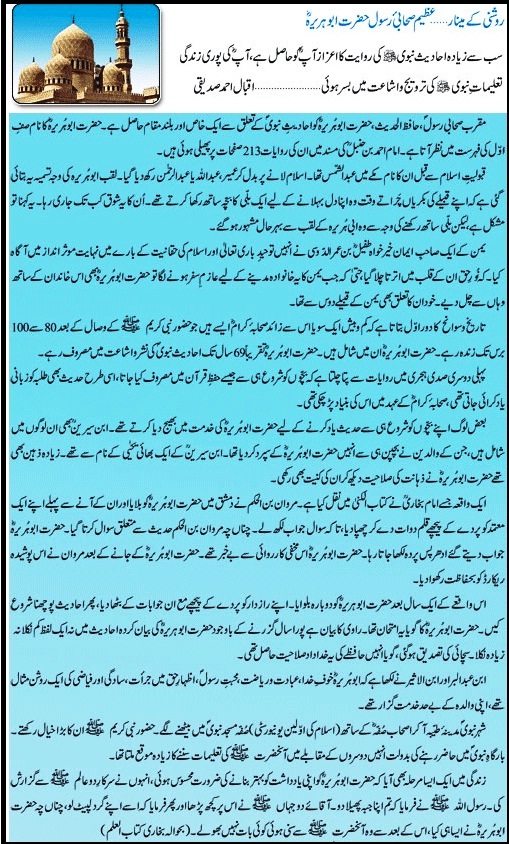 روشنی کے مینار......عظیم صحابیٔ رسول حضرت ابوہریرہؓ
سب سے زیادہ احادیث نبوی ﷺ کی روایت کا اعزاز آپؓ کو حاصل ہے، آپؓ کی پوری زندگی
تعلیمات نبوی ﷺ کی ترویج و اشاعت میں بسر ہوئی......................اقبال احمد صدیقی
مقرب صحابی رسولؐ، حافظ الحدیث، حضرت ابوہریرہؓ کو احادیثِ نبویؐ کے تعلق سے ایک خاص اور بلند مقام حاصل ہے۔ حضرت ابوہریرہؓ کا نام صفِ
اوّل کی فہرست میں نظر آتا ہے۔ امام احمد بن حنبلؒ کی مسند میں ان کی روایات 213 صفحات پر پھیلی ہوئی ہیں۔
قبولیتِ اسلام سے قبل ان کا نام مکے میں عبدالشمس تھا۔ اسلام لانے پر بدل کر عمیر، عبداللہ یا عبدالرحمٰن رکھ دیا گیا۔ لقب ابوہریرہ کی وجہ تسمیہ یہ بتائی
گئی ہے کہ اپنے قبیلے کی بکریاں چراتے وقت وہ اپنا دل بہلانے کے لیے ایک بلی کا بچہ ساتھ رکھا کرتے تھے۔ اُن کا یہ شوق کب تک جاری رہا۔ یہ کہنا تو
مشکل ہے، لیکن بلی ساتھ رکھنے کی وجہ سے وہ ابی ہریرہ کے لقب سے بہرحال مشہور ہوگئے۔
یمن کے ایک صاحب ایمان خیر خواہ طفیلؓ بن عمر الدّوسی نے انہیں توحیدِ باری تعالیٰ اور اسلام کی حقانیت کے بارے میں نہایت موثر انداز میں آگاہ
کیا کہ نُورِ حق ان کے قلب میں اترتا چلا گیا حتیٰ کہ جب یمن کا یہ خانوادہ مدینے کے لیے عازم سفر ہونے لگا تو حضرت ابوہریرہؓ بھی اس خاندان کے ساتھ
وہاں سے چل دیے۔ خود ان کا تعلق بھی یمن کے قبیلے دوس سے تھا۔
تاریخ و سوانح کا دور اوّل بتاتا ہے کہ کم و بیش ایک سو یا اس سے زائد صحابۂ کرامؓ ایسے ہیں جو حضور نبی کریم ﷺ کے وصال کے بعد 80 سے 100
برس تک زندہ رہے۔ حضرت ابوہریرہؓ ان میں شامل ہیں۔ حضرت ابوہریرہؓ تقریباً 69 سال تک احادیث نبویؐ کی نشر و اشاعت میں مصروف رہے۔
پہلی دوسری صدی ہجری میں روایات سے پتا چلتا ہے کہ بچّوں کو شروع ہی سے جیسے حفظِ قرآن میں مصروف کیا جاتا، اسی طرح حدیث بھی طلبہ کو زبانی
یاد کرائی جاتی تھی، صحابۂ کرامؓ کے عہد میں اس کی بنیاد پڑ چکی تھی۔
بعض لوگ اپنے بچّوں کو شروع ہی سے حدیث یاد کرنے کے لیے حضرت ابوہریرہؓ کی خدمت میں بھیج دیا کرتے تھے۔ ابن سیرینؒ بھی ان لوگوں میں
شامل ہیں، جن کے والدین نے بچپن ہی سے انہیں حضرت ابوہریرہؓ کے سپرد کر دیا تھا۔ ابن سیرینؒ کے ایک بھائی یحیٰی کے نام سے تھے۔ زیادہ ذہین بھی
تھے حضرت ابوہریرہؓ نے ذہانت کی صلاحیت دیکھ کر ان کی کنیت بھی رکھی۔
ایک واقعہ جسے امام بخاریؒ نے کتاب الکنیٰ میں نقل کیا ہے۔ مروان بن الحکم نے دمشق میں حضرت ابوہریرہؓ کو بلایا اور ان کے آنے سے پہلے اپنے ایک
معتمد کو پردے کے پیچھے قلم دوات دے کر چھپا دیا، تاکہ سوال جواب لکھ لے۔ چناں چہ مروان بن الحکم حدیث سے متعلق سوال کرتا گیا۔ حضرت ابوہریرہؓ
جواب دیتے گئے اور پس پردہ لکھا جاتا رہا۔ حضرت ابوہریرہؓ اس مخفی کارروائی سے بے خبر تھے۔ حضرت ابوہریرہؓ کے جانے کے بعد مروان نے اس پوشیدہ
ریکارڈ کو بحفاظت رکھوا دیا۔
اس واقعے کے ایک سال بعد حضرت ابوہریرہؓ کو دوبارہ بلوایا۔ اپنے رازدار کو پردے کے پیچھے مع ان جوابات کے بٹھا دیا، پھر احادیث پوچھنا شروع
کیں۔ حضرت ابوہریرہؓ کا گویا یہ امتحان تھا۔ راوی کا بیان ہے پورا سال گزرنے کے باوجود حضرت ابوہریرہؓ کی بیان کردہ احادیث میں نہ ایک لفظ کم نکلا نہ
زیادہ نکلا۔ سچائی کی تصدیق ہوگئی، گویا انہیں حافظے کی یہ خداداد صلاحیت حاصل تھی۔
ابن عبدالبر اور ابن الاثیر نے لکھا ہے کہ ابوہریرہؓ خوفِ خدا، عبادت و ریاضت، محبتِ رسولؐ، اظہارِ حق میں جرأت، سادگی اور فیاضی کی ایک روشن مثال
تھے، اپنی والدہ کے بے حد خدمت گزار تھے۔
شہرِ نبویؐ مدینۂ طیبہ آکر اصحاب صُفّہ کے ساتھ (اسلام کی اوّلین یونیورسٹی) صُفّہ مسجد نبویؐ میں بیٹھنے لگے۔ حضور نبی کریم ﷺ ان کا بڑا خیال رکھتے۔
بارگاہِ نبویؐ میں حاضر رہنے کی بدولت انہیں دوسروں کے مقابلے میں آنحضرت ﷺ کی تعلیمات سننے کا زیادہ موقع ملتا تھا۔
زندگی میں ایک ایسا مرحلہ بھی آیا کہ حضرت ابوہریرہؓ کو اپنی یادداشت کو بہتر بنانے کی ضرورت محسوس ہوئی، انہوں نے سرکارِ دو عالم ﷺ سے گزارش
کی۔ رسول اللہ ﷺ نے فرمایا کہ تم اپنا جبہ پھیلا دو۔ آقائے دو جہاں ﷺ نے اس پر کچھ پڑھا اور پھر فرمایا کہ اسے اپنے گرد لپیٹ لو، چناں چہ حضرت
ابوہریرہؓ نے ایسا ہی کیا، اس کے بعد سے وہ آنحضرت ﷺ سے سنی ہوئی کوئی بات نہیں بھولے۔ (بحوالہ بخاری کتاب العلم)